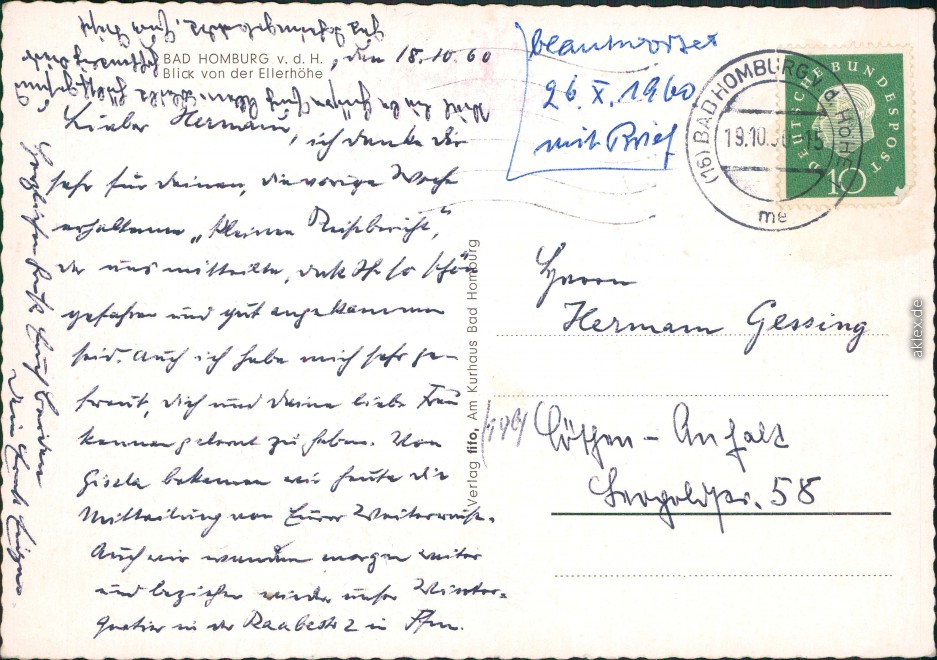 BAD HOMBURG v. d. H.
Blick von der Ellerhöhe
, den 18.10.60
Lieber Hermann, ich danke dir
sehr für deinen, die vorige Woche
erhaltenen „kleinen Reisebericht",
der uns mitteilte, daß Ihr so schön
gefahren und gut angekommen
seid. Auch ich habe mich sehr ge-
freut, dich und deine liebe Frau
kennen gelernt zu haben. Von
Gisela bekamen wir heute die
Mitteilung von Eurer Weiterreise.
Auch wir wandern morgen weiter
und beziehen wieder unser Winter-
quartier in der Raabestr 2 in Ffm.
Herzlichen Gruß Euch beiden
Dein
beantwortet
26.X.1960
mit Brief
(16) BAD HOMBURG v. d. HÖHE
19.10.60-15
me
DEUTSCHE BUNDESPOST
10
Verlag fifo, Am Kurhaus Bad Homburg
Herrn
Hermann Gessing
Cöthen - Anhalt
Leopoldstr. 58
aklex.de